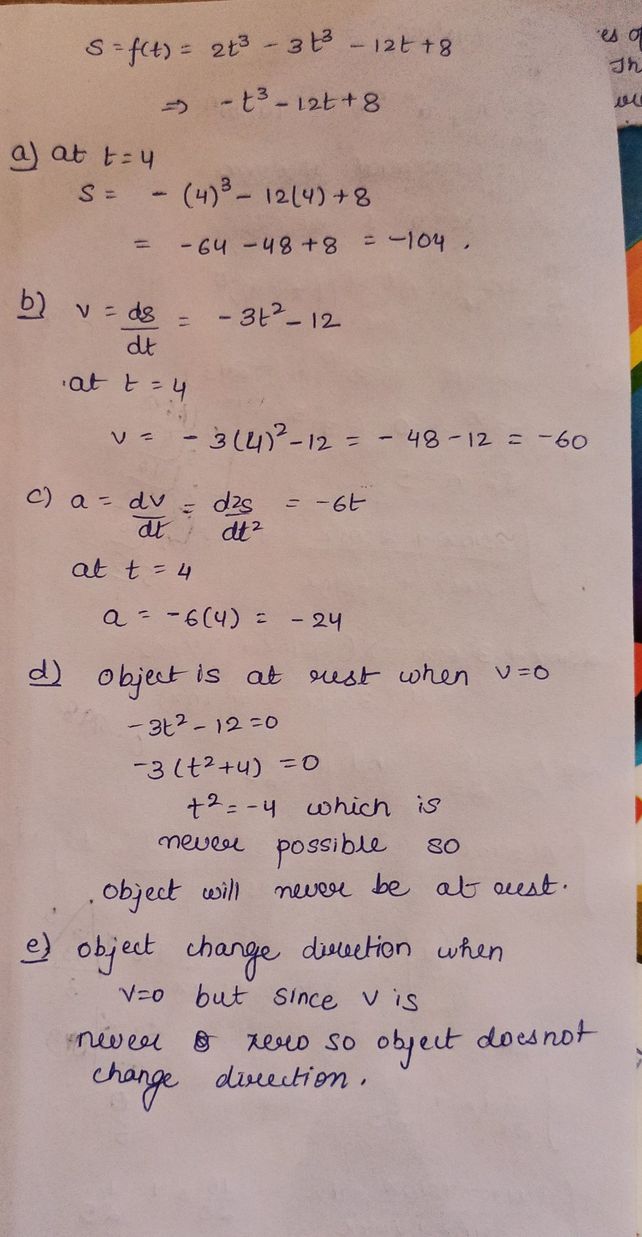 S = f(t) = 2t³ - 3t³ - 12t + 8
⇒ -t³ - 12t + 8
a) at t = 4
S = - (4)³ - 12(4) + 8
= -64 - 48 + 8 = -104 .
b) v = ds/dt = -3t² - 12
at t = 4
v = - 3(4)² - 12 = - 48 - 12 = -60
c) a = dv/dt = d2s/dt² = -6t
at t = 4
a = -6(4) = - 24
d) object is at rest when v=0
-3t² - 12 = 0
-3 (t² + 4) = 0
t² = -4 which is
never possible so
object will never be at rest.
e) object change direction when
v=0 but since v is
never zero so object doesnot
change direction.
es
Th